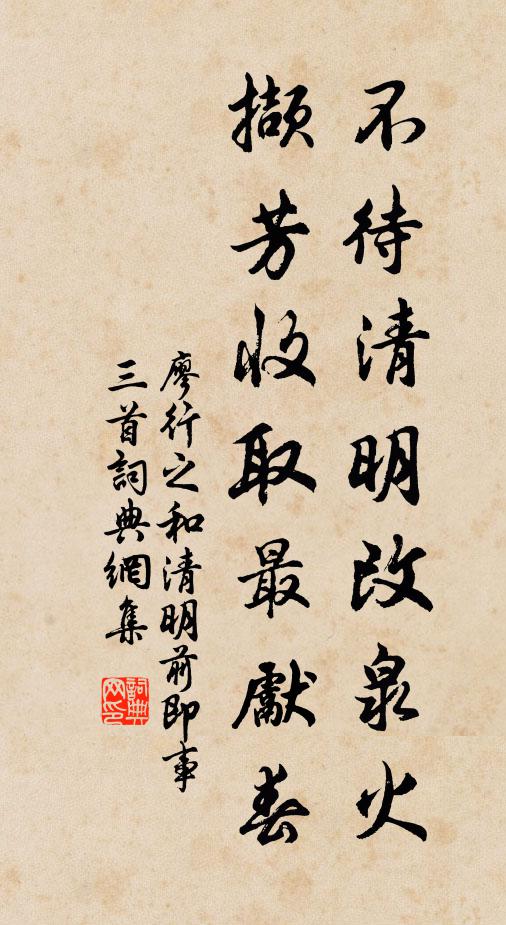 不待清明改泉火
擷芳收取最獻春
廖行之和清明前即事
三首詞典網集
詞典網印